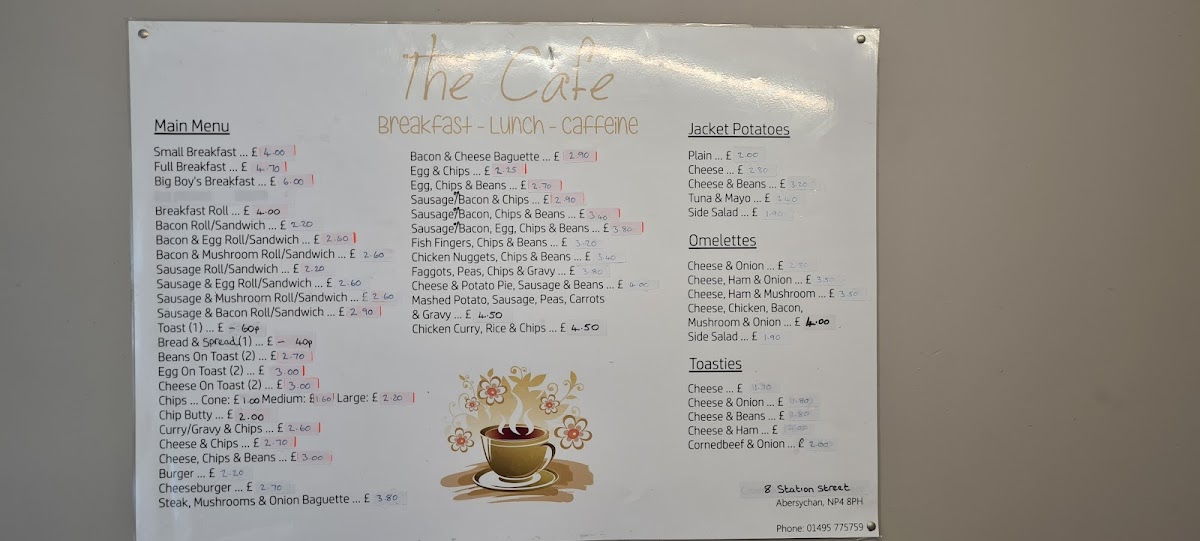 The Cafe
Breakfast - Lunch - Caffeine
Main Menu
Small Breakfast ... £ 4.00
Full Breakfast ... £ 4.70
Big Boy's Breakfast ... £ 6.00
Breakfast Roll ... £ 4.00
Bacon Roll/Sandwich ... £ 2.20
Bacon & Egg Roll/Sandwich ... £ 2.60
Bacon & Mushroom Roll/Sandwich ... £ 2.60
Sausage Roll/Sandwich ... £ 2.20
Sausage & Egg Roll/Sandwich ... £ 2.60
Sausage & Mushroom Roll/Sandwich ... £ 2.60
Sausage & Bacon Roll/Sandwich ... £ 2.90
Toast (1) ... £ - 60p
Bread & Spread (1) ... £ - 40p
Beans On Toast (2) ... £ 2.70
Egg On Toast (2) ... £ 3.00
Cheese On Toast (2) ... £ 3.00
Chips ... Cone: £1.00 Medium: £1.60 Large: £ 2.20
Chip Butty ... £ 2.00
Curry/Gravy & Chips ... £ 2.60
Cheese & Chips ... £ 2.70
Cheese, Chips & Beans ... £ 3.00
Burger ... £ 2.20
Cheeseburger ... £ 2.70
Steak, Mushrooms & Onion Baguette ... £ 3.80
Bacon & Cheese Baguette ... £ 2.90
Egg & Chips ... £ 2.25
Egg, Chips & Beans ... £ 2.70
Sausage/Bacon & Chips ... £ 2.90
Sausage/Bacon, Chips & Beans ... £ 3.40
Sausage/Bacon, Egg, Chips & Beans ... £ 3.80
Fish Fingers, Chips & Beans ... £ 3.20
Chicken Nuggets, Chips & Beans ... £ 3.40
Faggots, Peas, Chips & Gravy ... £ 3.80
Cheese & Potato Pie, Sausage & Beans ... £ 4.00
Mashed Potato, Sausage, Peas, Carrots
& Gravy ... £ 4.50
Chicken Curry, Rice & Chips ... £ 4.50
Jacket Potatoes
Plain ... £ 2.00
Cheese ... £ 2.80
Cheese & Beans ... £ 3.20
Tuna & Mayo ... £
Side Salad ... £ 1.90
Omelettes
Cheese & Onion ... £
Cheese, Ham & Onion ... £ 3.50
Cheese, Ham & Mushroom ... £ 3.50
Cheese, Chicken, Bacon,
Mushroom & Onion ... £ 4.00
Side Salad ... £ 1.90
Toasties
Cheese ... £
Cheese & Onion ... £ 1.80
Cheese & Beans ... £
Cheese & Ham ... £
Cornedbeef & Onion ... £ 2.00
8 Station Street
Abersychan, NP4 8PH
Phone: 01495 775759